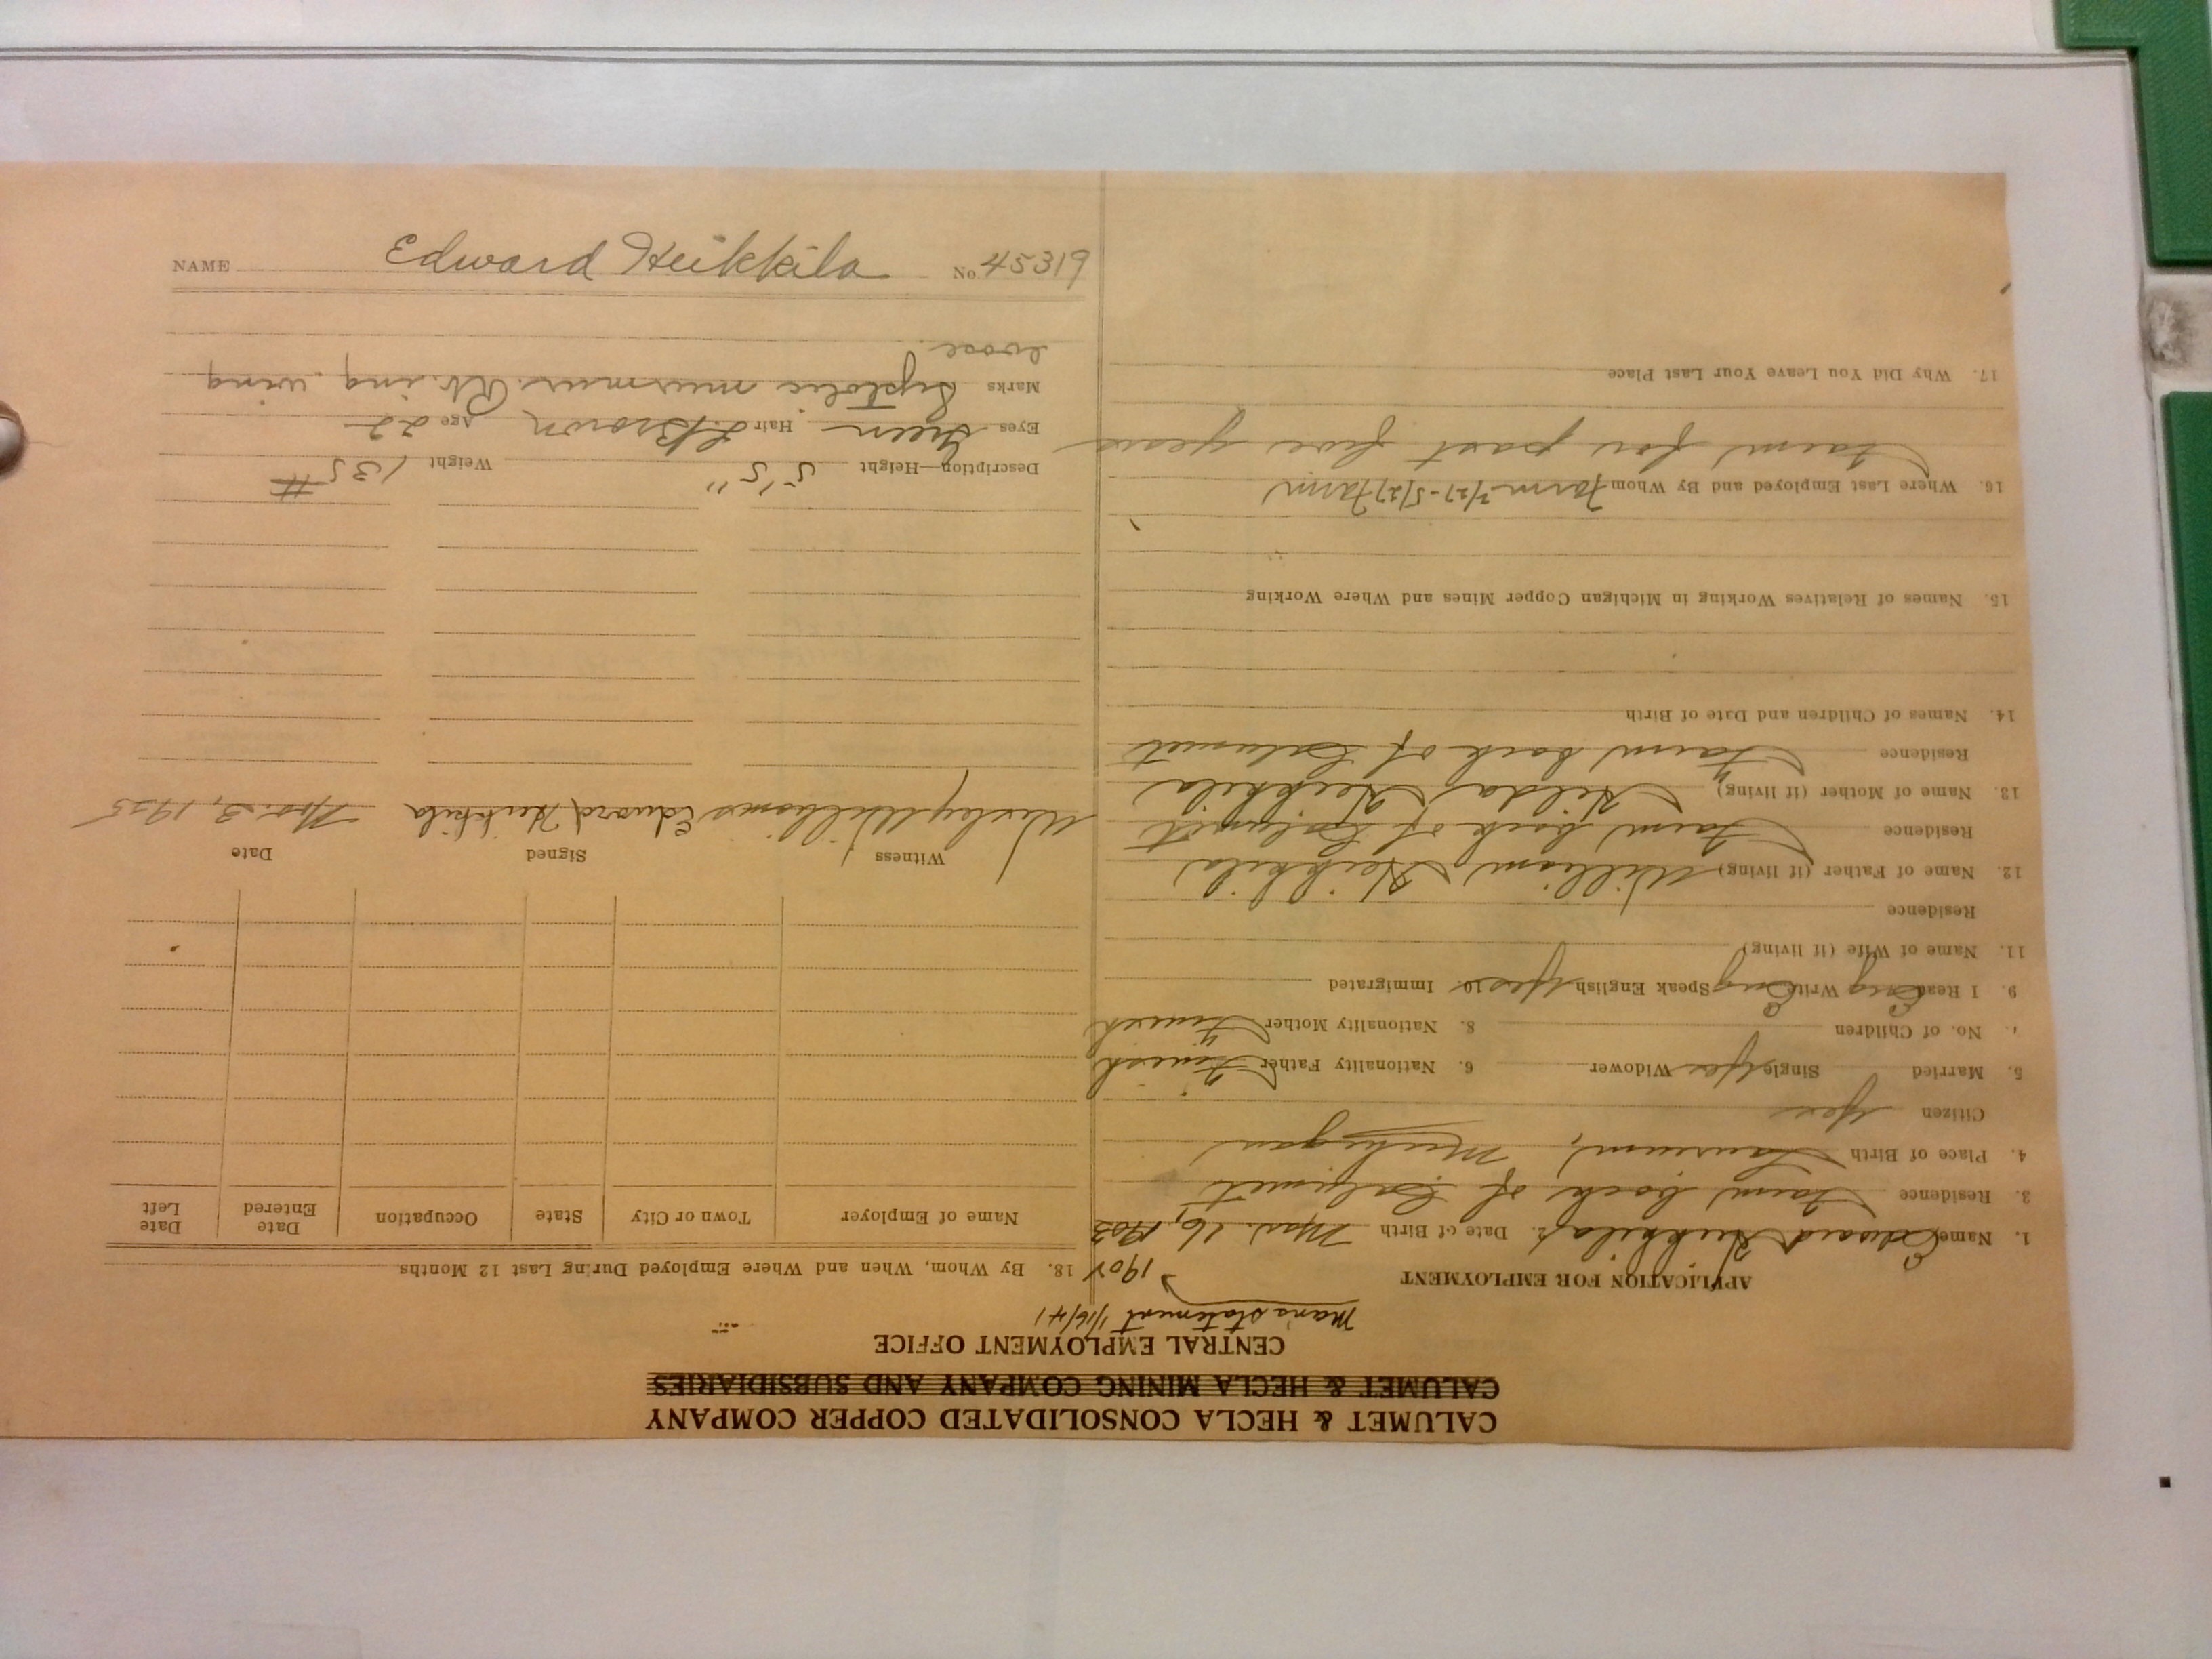 CALUMET & HECLA CONSOLIDATED COPPER COMPANY
CALUMET & HECLA MINING COMPANY AND SUBSIDIARIES
CENTRAL EMPLOYMENT OFFICE
Man's statement 1/16/41
1904
APPLICATION FOR EMPLOYMENT
1. Name Edward Heikkila 2. Date of Birth Mar. 16, 1903
3. Residence Farm back of Calumet
4. Place of Birth Laurium, Michigan
Citizen Yes
5. Married Single Yes Widower 6. Nationality Father Finnish
7. No. of Children 8. Nationality Mother Finnish
9. I Read Eng Write Eng Speak English Yes 10. Immigrated
11. Name of Wife (if living)
Residence
12. Name of Father (if living) William Heikkila
Residence Farm back of Calumet
13. Name of Mother (if living) Hilda Heikkila
Residence Farm back of Calumet
14. Names of Children and Date of Birth
15. Names of Relatives Working in Michigan Copper Mines and Where Working
16. Where Last Employed and By Whom Farm 2/27-5/27 Farm
Farm for past five years
17. Why Did You Leave Your Last Place
18. By Whom, When and Where Employed During Last 12 Months
Name of Employer Town or City State Occupation Date Entered Date Left
Witness Signed Date
Wesley Williams Edward Heikkila Nov. 3, 1925
Description—Height 5'5" Weight 135 #
Eyes Green Hair L. Brown Age 22
Marks Systolic murmur. Rt. ing. ring
loose
NAME Edward Heikkila No. 45319